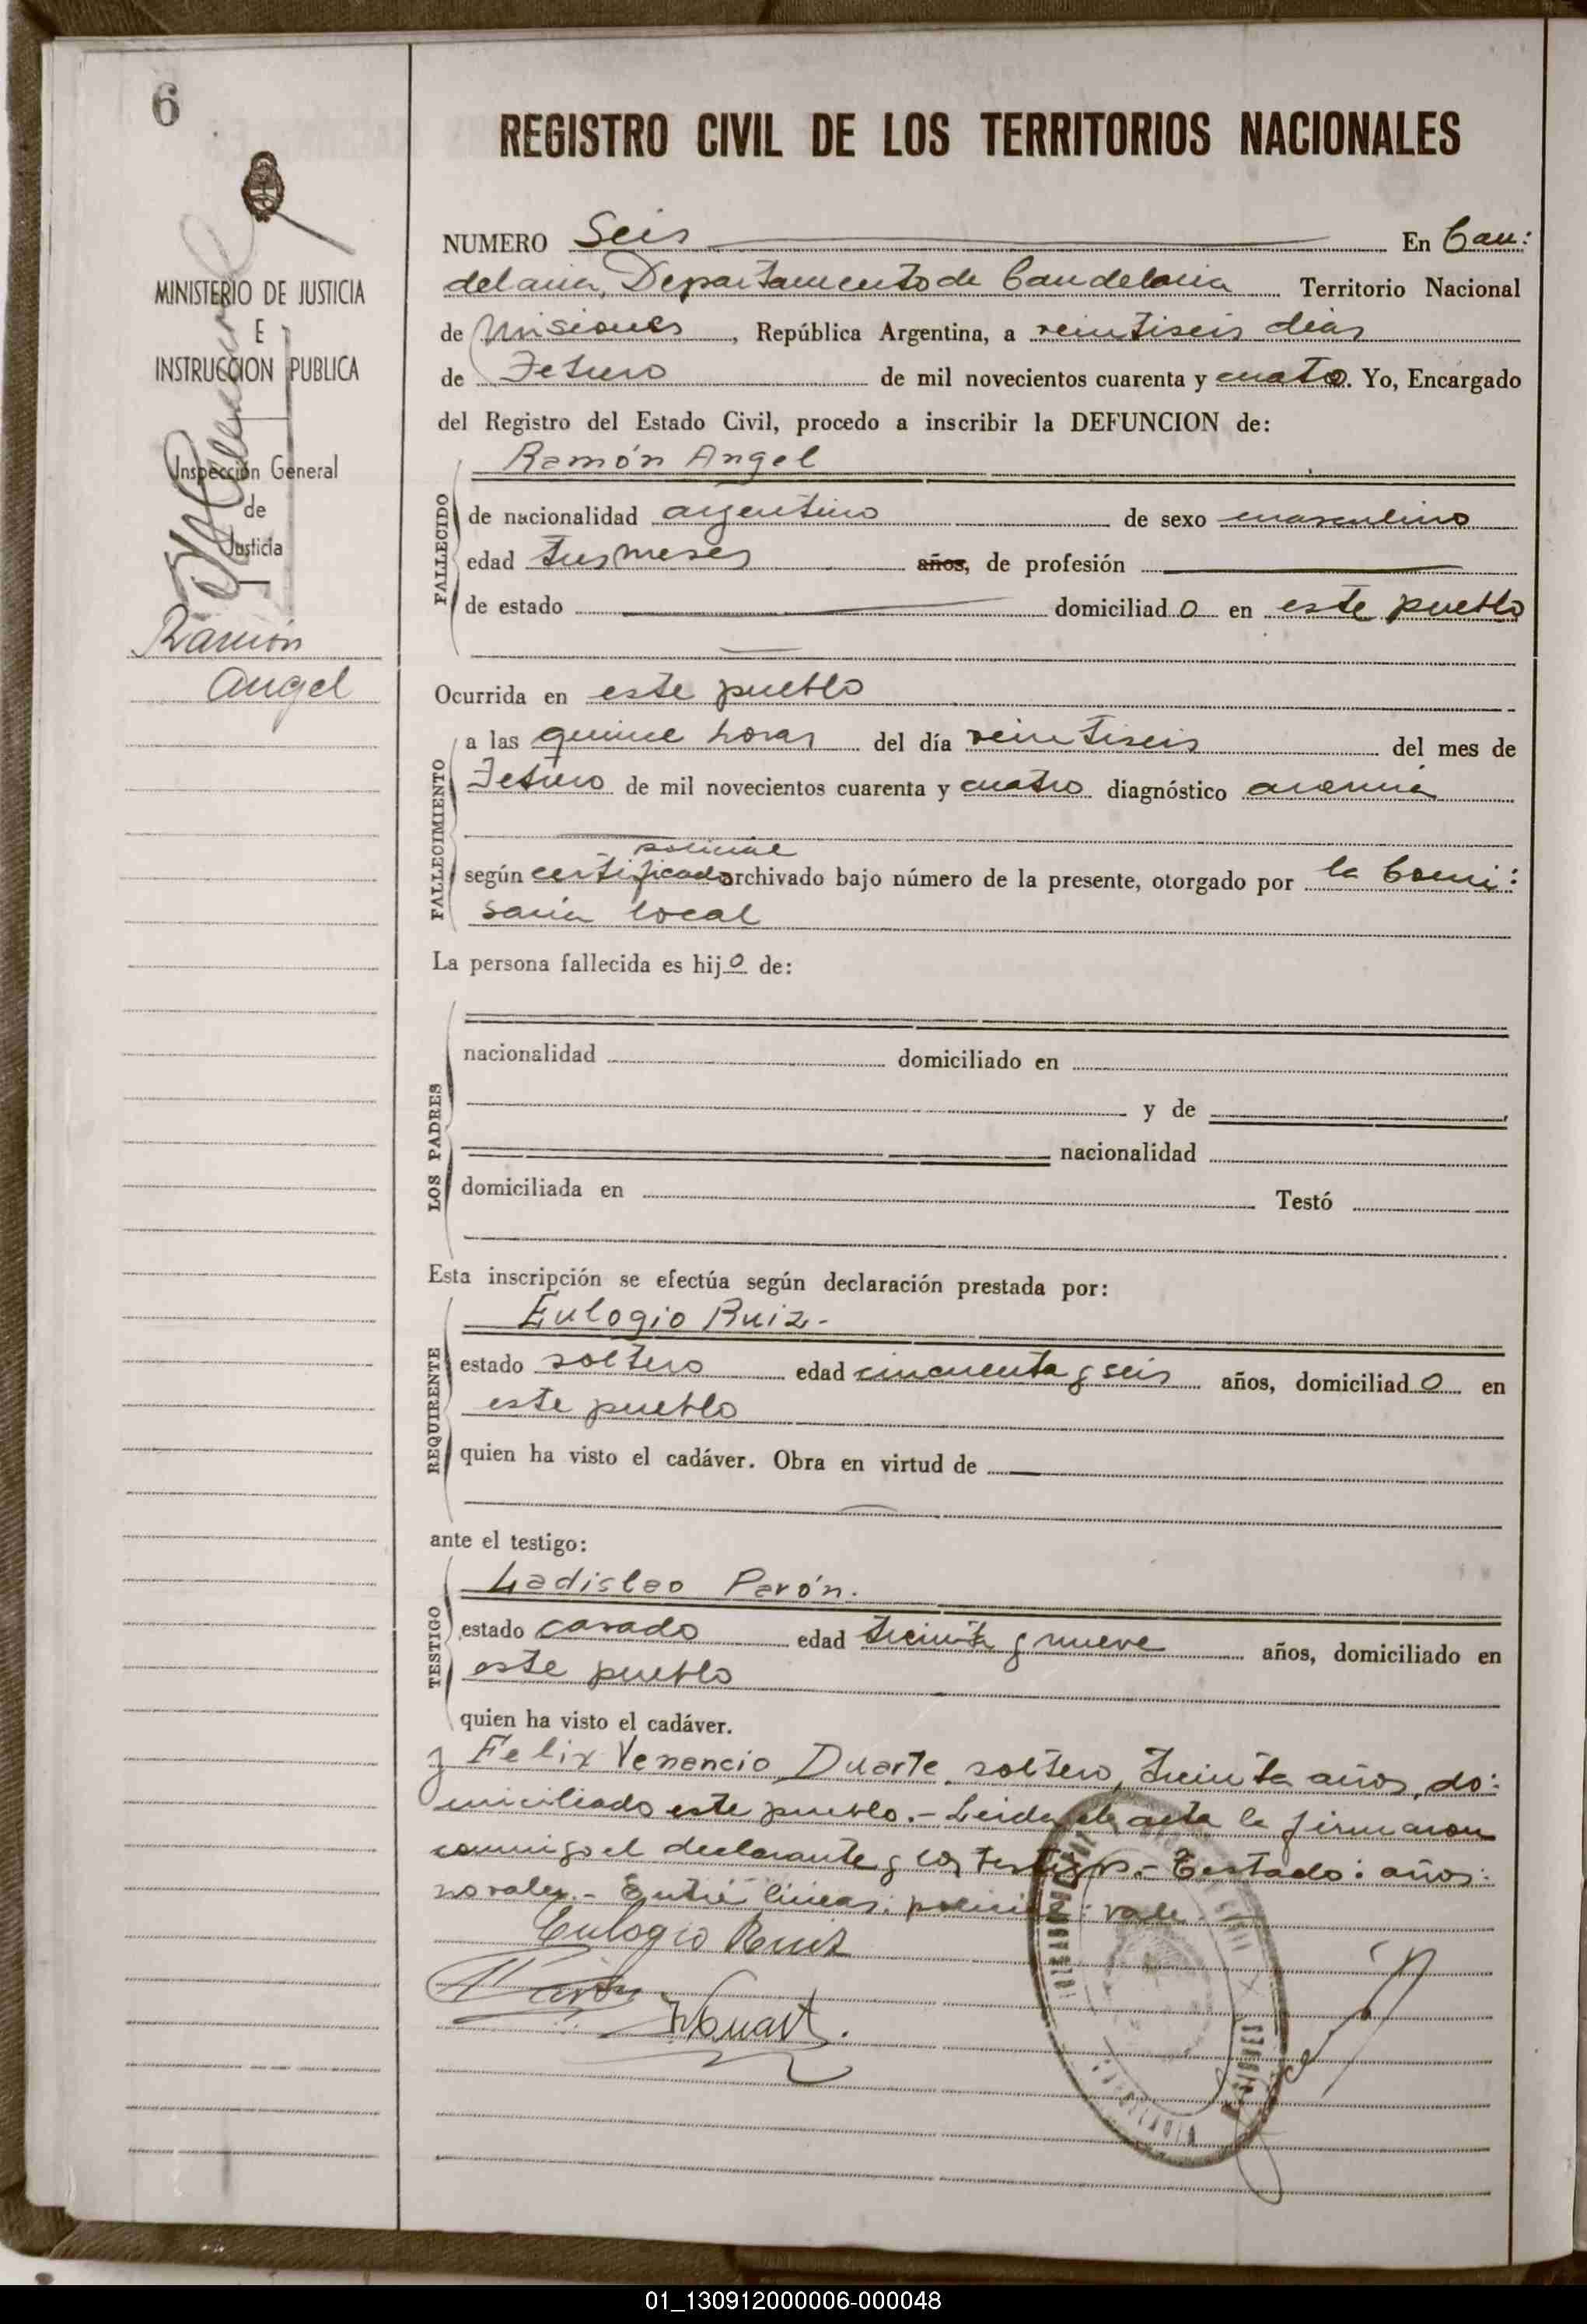 6
REGISTRO CIVIL DE LOS TERRITORIOS NACIONALES
MINISTERIO DE JUSTICIA
E
INSTRUCCION PUBLICA
Inspección General
de
Justicia
Ramón
Angel
NUMERO Seis En Can:
delaria, Departamento de Candelaria Territorio Nacional
de Misiones, República Argentina, a veintiseis dias
de Febrero de mil novecientos cuarenta y cuatro. Yo, Encargado
del Registro del Estado Civil, procedo a inscribir la DEFUNCION de:
Ramón Angel
FALLECIDO
de nacionalidad argentino de sexo masculino
edad tres meses años, de profesión
de estado domiciliad o en este pueblo
Ocurrida en este pueblo
FALLECIMIENTO
a las quince horas del día veintiseis del mes de
Febrero de mil novecientos cuarenta y cuatro diagnóstico anemia
policial
según certificado archivado bajo número de la presente, otorgado por la Comi:
saria local
La persona fallecida es hijo de:
LOS PADRES
nacionalidad domiciliado en
y de
nacionalidad
domiciliada en Testó
Esta inscripción se efectúa según declaración prestada por:
Eulogio Ruiz.-
REQUIRENTE
estado soltero edad cincuenta y seis años, domiciliad o en
este pueblo
quien ha visto el cadáver. Obra en virtud de
ante el testigo:
Ladislao Perón.
TESTIGO
estado casado edad treinta y nueve años, domiciliado en
este pueblo
quien ha visto el cadáver.
y Felix Venancio Duarte, soltero, treinta años, do:
miciliado este pueblo.- Leida el acta la firmaron
conmigo el declarante y los testigos.- Testado: años:
no vale.- Entre lineas: policial: vale.-
Eulogio Ruiz
01_130912000006-000048